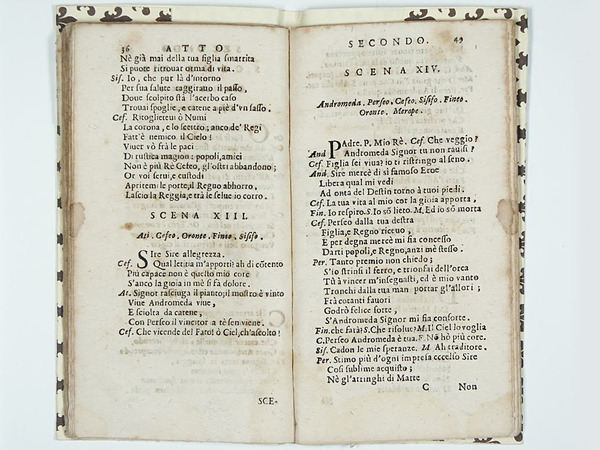 36 ATTO
Nè già mai della tua figlia smarrita
Si puote ritrouar orma di vita.
Sis. Io, che pur là d'intorno
Per sua salute raggirauo il passo,
Doue scolpito stà l'acerbo caso
Trouai spoglie, e catene a piè d'vn sasso.
Cef. Ritoglieteui ò Numi
La corona, e lo scettro; anco de' Regi
Fatt'è nemico il Cielo!
Viuer vò frà le paci
Di rustica magion: popoli, amici
Non è più Rè Cefeo, gl'ostri abbandono;
Or voi serui, e custodi
Apritemi le porte, il Regno abhorro,
Lascio la Reggia, e trà le selue io corro.
SCENA XIII.
Ati. Cefeo. Oronte. Fineo. Sisifo.
SIre Sire allegrezza.
Cef. Qual letitia m'apporti; ah di cōtento
Più capace non è questo mio core
S'anco la gioia in me si fa dolore.
At. Signor rasciuga il pianto; il mostro è vinto
Viue Andromeda viue,
E sciolta da catene,
Con Perseo il vincitor a tè sen viene.
Cef. Che vicende del Fato! ò Ciel, ch'ascolto!
SCE-
SECONDO. 49
SCENA XIV.
Andromeda. Perseo. Cefeo. Sisifo. Fineo.
Oronte. Merope.
PAdre. P. Mio Rè. Cef. Che veggio?
And Andromeda Signor tu non rauisi?
Cef. Figlia sei viua? io ti ristringo al seno.
And. Sire mercè di sì famoso Eroe
Libera qual mi vedi
Ad onta del Destin torno à tuoi piedi.
Cef. La tua vita al mio cor la gioia apporta,
Fin. Io respiro. S. Io sō lieto. M. Ed io sō morta
Cef. Perseo dalla tua destra
Figlia, e Regno riceuo;
E per degna mercè mi sia concesso
Darti popoli, e Regno, anzi mè stesso.
Per. Tanto premio non chiedo;
S'io strinsi il ferro, e trionfai dell'orca
Tù à vincer m'insegnasti, ed è mio vanto
Tronchi dalla tua man portar gl'allori;
Frà cotanti fauori
Godrò felice sorte,
S'Andromeda Signor mi sia consorte.
Fin. che farà? S. Che risolue? M. Il Ciel lo voglia
C. Perseo Andromeda è tua. F. Nō hò più core.
Sis. Cadon le mie speranze. M. Ah traditore.
Per. Stimo più d'ogni impresa eccelso Sire
Così sublime acquisto;
Nè gl'attringhi di Marte
C Non